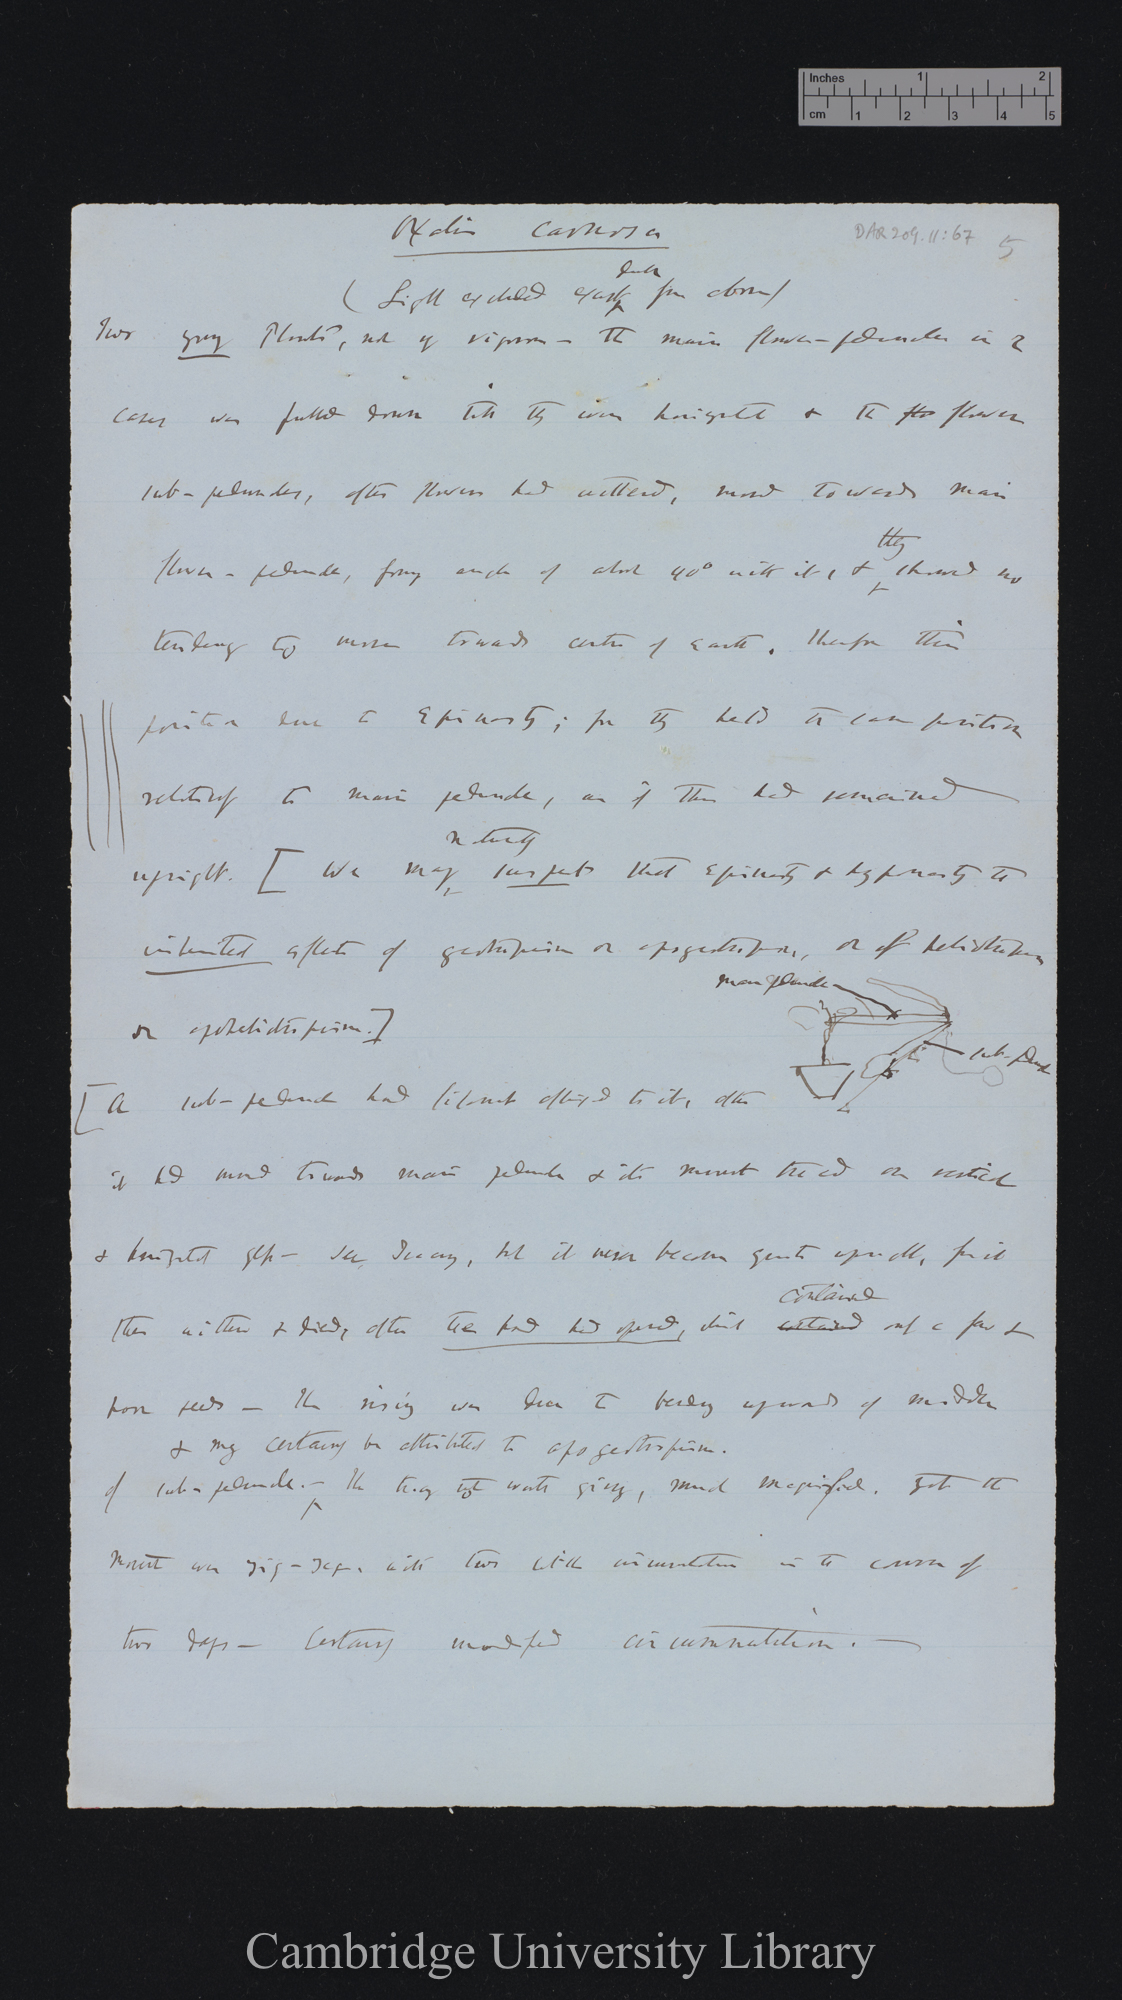 Inches 1 2
cm 1 2 3 4 5
DAR 209.11:67
5
Oxalis carnosa
(Light excluded except from above)
Two young Plants, not vigorous — The main flower-peduncles in 2
cases was pulled down till they were horizontal & the flo flower
sub-peduncles, after flowers had withered, moved towards main
flower-peduncle, forming angle of about 40° with it, & they showed no
tendency to move towards centre of earth, therefore this
position due to Epinasty; for they held the same position
relatively to main peduncle, as if this had remained
naturally
upright. [We may suspect that Epinasty & hyponasty the
inherited effects of geotropism or apogeotropism, or of heliotropism
or apheliotropism.]
main peduncle
sub-peduncle
[A sub-peduncle had filament affixed to it, after
it had moved towards main peduncle & its movement traced on vertical
& horizontal glass — see Tracing, but it never became quite upright, for it
contained
then withered & died, after the pod had opened, which contained only a few &
poor seeds — The rising was due to bending upwards of middle
& may certainly be attributed to apogeotropism.
of sub-peduncle. — The tracing not worth giving, much magnified. Yet the
movement was zig-zag, with two little circumnutations in the course of
two days — Certainly modified circumnutation. —
Cambridge University Library